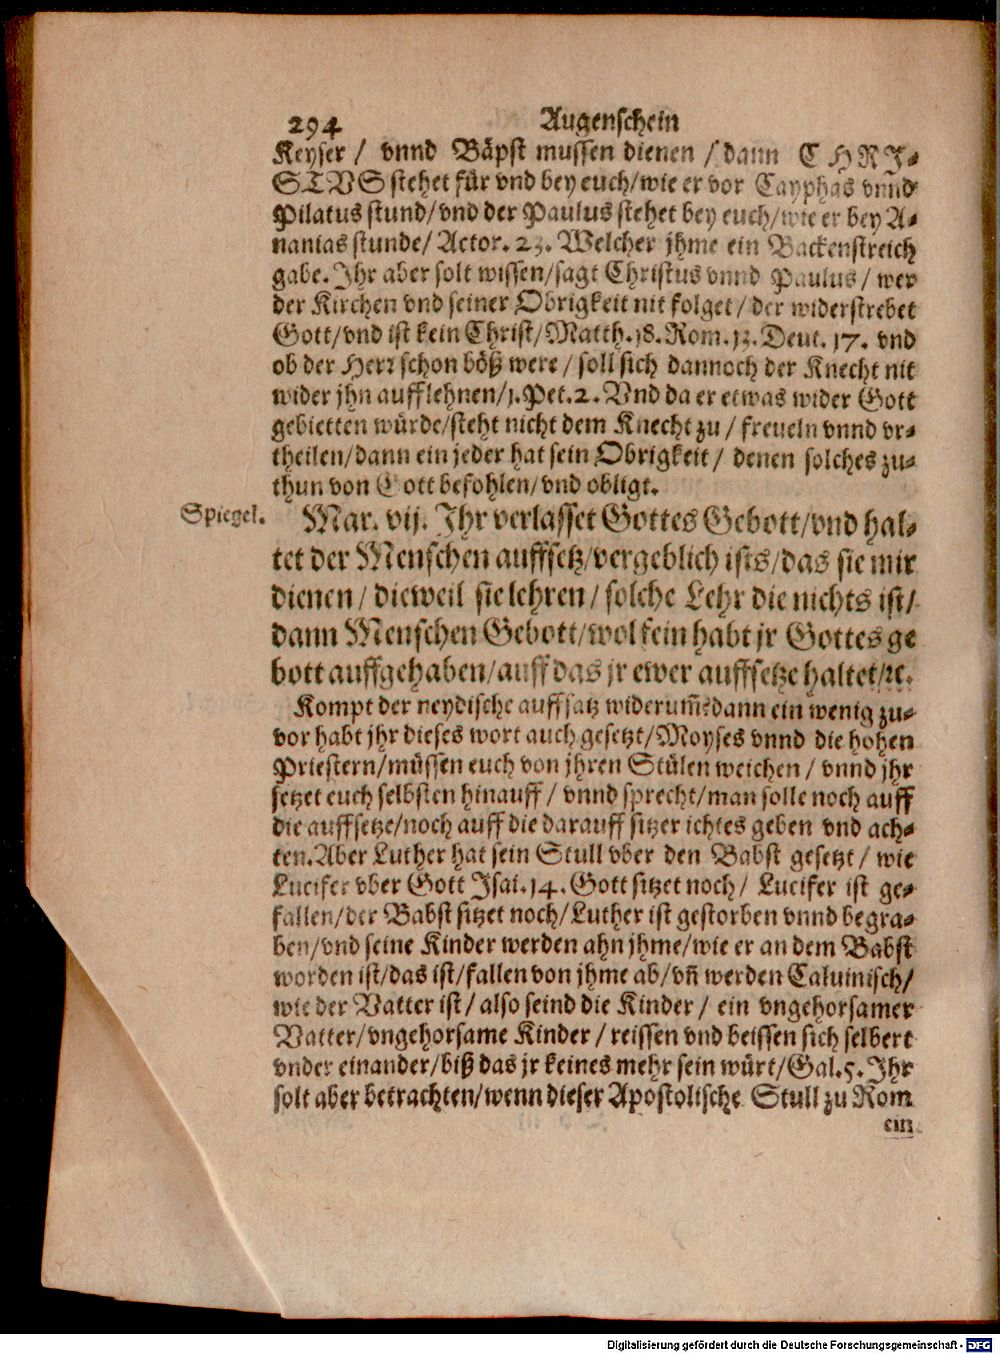 294 Augenschein
Keyser / vnnd Bäpst mussen dienen / dann CHRI-
STVS stehet für vnd bey euch/wie er vor Cayphas vnnd
Pilatus stund/vnd der Paulus stehet bey euch/wie er bey A-
nanias stunde/Actor. 23. Welcher jhme ein Backenstreich
gabe. Ihr aber solt wissen/sagt Christus vnnd Paulus / wer
der Kirchen vnd seiner Obrigkeit nit folget/der widerstrebet
Gott/vnd ist kein Christ/Matth. 18. Rom. 13. Deut. 17. vnd
ob der Herr schon böß were / soll sich dannoch der Knecht nit
wider jhn aufflehnen/1. Pet. 2. Vnd da er etwas wider Gott
gebietten würde/steht nicht dem Knecht zu / freueln vnnd vr-
theilen/dann ein jeder hat sein Obrigkeit / denen solches zu-
thun von Gott befohlen/vnd obligt.
Spiegel. Mar. vij. Ihr verlasset Gottes Gebott/vnd hal-
tet der Menschen auffsetz/vergeblich ists/das sie mir
dienen / dieweil sie lehren / solche Lehr die nichts ist/
dann Menschen Gebott/wol fein habt jr Gottes ge
bott auffgehaben/auff das jr ewer auffsetze haltet/ꝛc.
Kompt der neydische auffsatz widerum̃? dann ein wenig zu-
vor habt jhr dieses wort auch gesetzt/Moyses vnnd die hohen
Priestern/müssen euch von jhren Stülen weichen / vnnd jhr
setzet euch selbsten hinauff / vnnd sprecht/man solle noch auff
die auffsetze/noch auff die darauff sitzer ichtes geben vnd ach-
ten. Aber Luther hat sein Stull vber den Babst gesetzt / wie
Lucifer vber Gott Isai. 14. Gott sitzet noch / Lucifer ist ge-
fallen/der Babst sitzet noch/Luther ist gestorben vnnd begra-
ben/vnd seine Kinder werden ahn jhme/wie er an dem Babst
worden ist/das ist/fallen von jhme ab/vñ werden Caluinisch/
wie der Vatter ist / also seind die Kinder / ein vngehorsamer
Vatter/vngehorsame Kinder / reissen vnd beissen sich selbert
vnder einander/biß das jr keines mehr sein würt/Gal. 5. Ihr
solt aber betrachten/wenn dieser Apostolische Stull zu Rom
ein
Digitalisierung gefördert durch die Deutsche Forschungsgemeinschaft - DFG